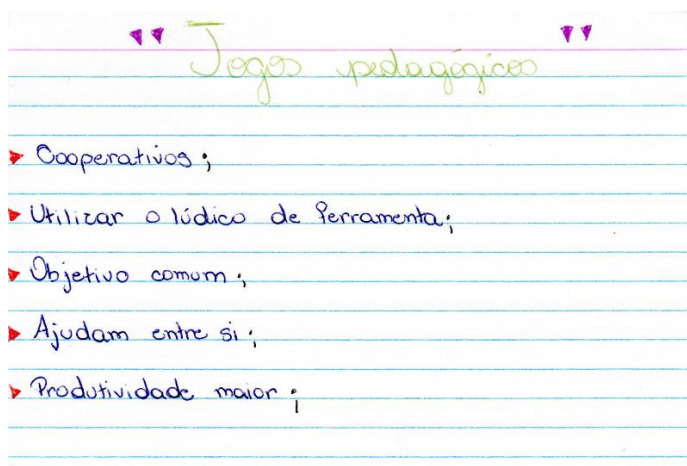 "Jogos pedagógicos"
Cooperativos;
Utilizar o lúdico de ferramenta;
Objetivo comum;
Ajudam entre si;
Produtividade maior;